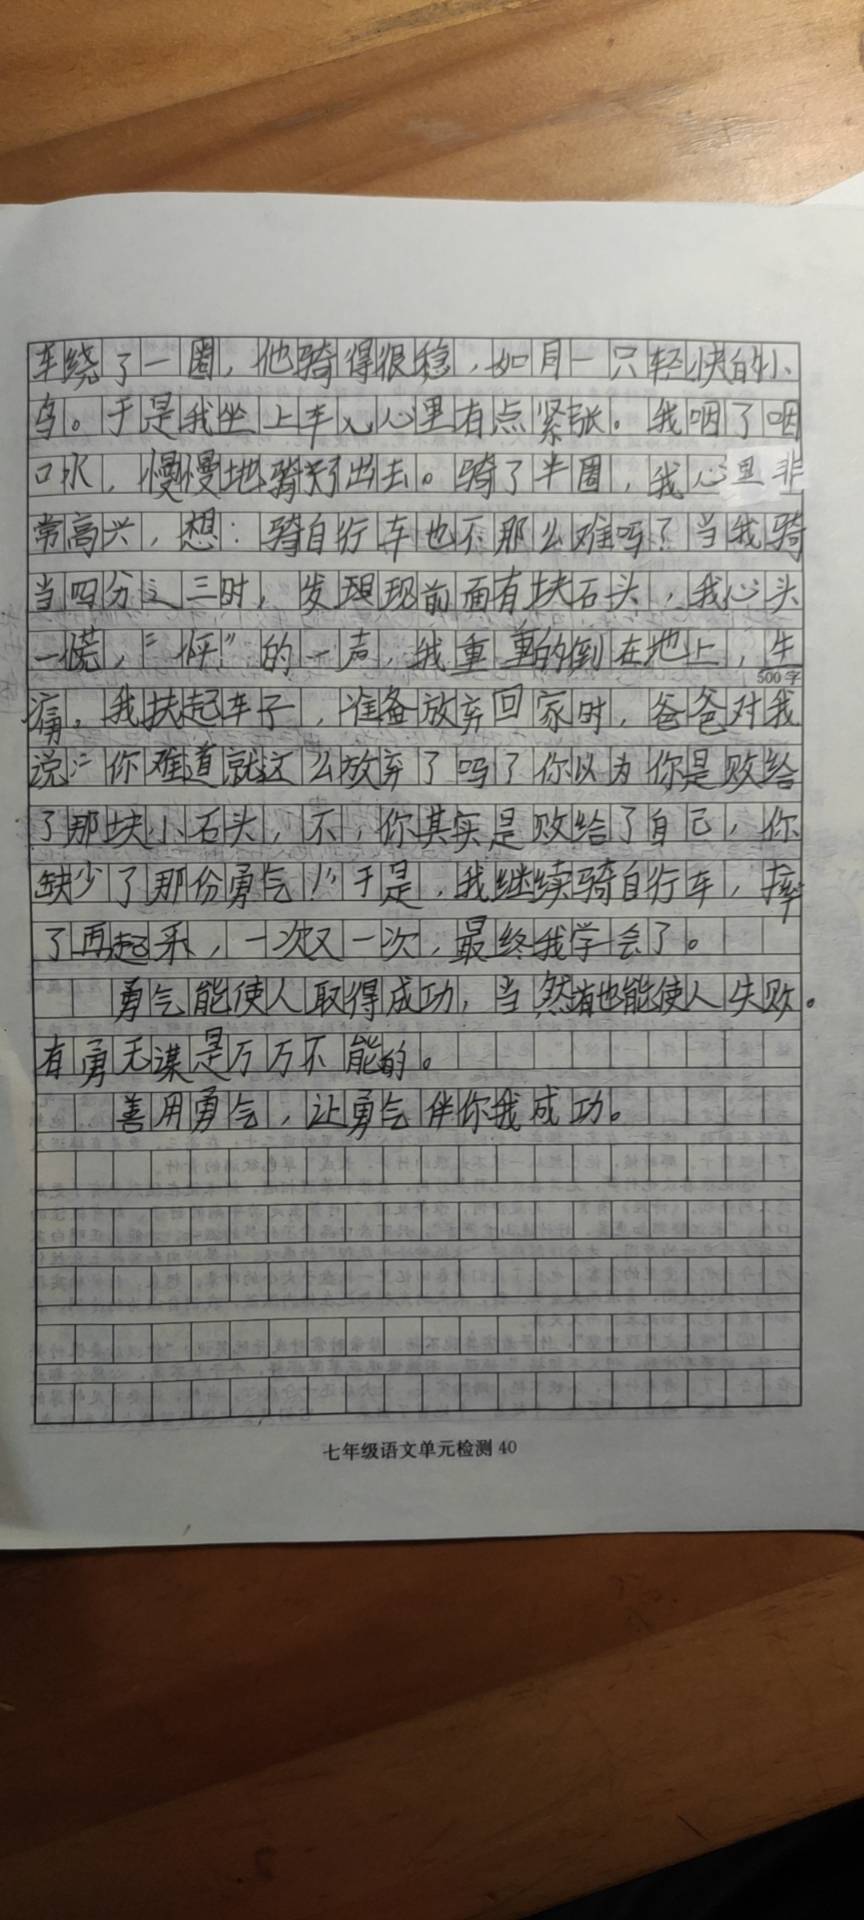 车绕了一圈，他骑得很稳，如同一只轻快的小
鸟。于是我坐上车，心里有点紧张。我咽了咽
口水，慢慢地骑了出去。骑了半圈，我心里非
常高兴，想：骑自行车也不那么难吗？当我骑
当四分之三时，发现前面有块石头，我心头
一慌，“怦”的一声，我重重的倒在地上，生
500字
痛，我扶起车子，准备放弃回家时，爸爸对我
说：“你难道就这么放弃了吗？你以为你是败给
了那块小石头，不，你其实是败给了自己，你
缺少了那份勇气！”于是，我继续骑自行车，摔
了再起来，一次又一次，最终我学会了。
勇气能使人取得成功，当然有也能使人失败。
有勇无谋是万万不能的。
善用勇气，让勇气伴你我成功。
七年级语文单元检测 40